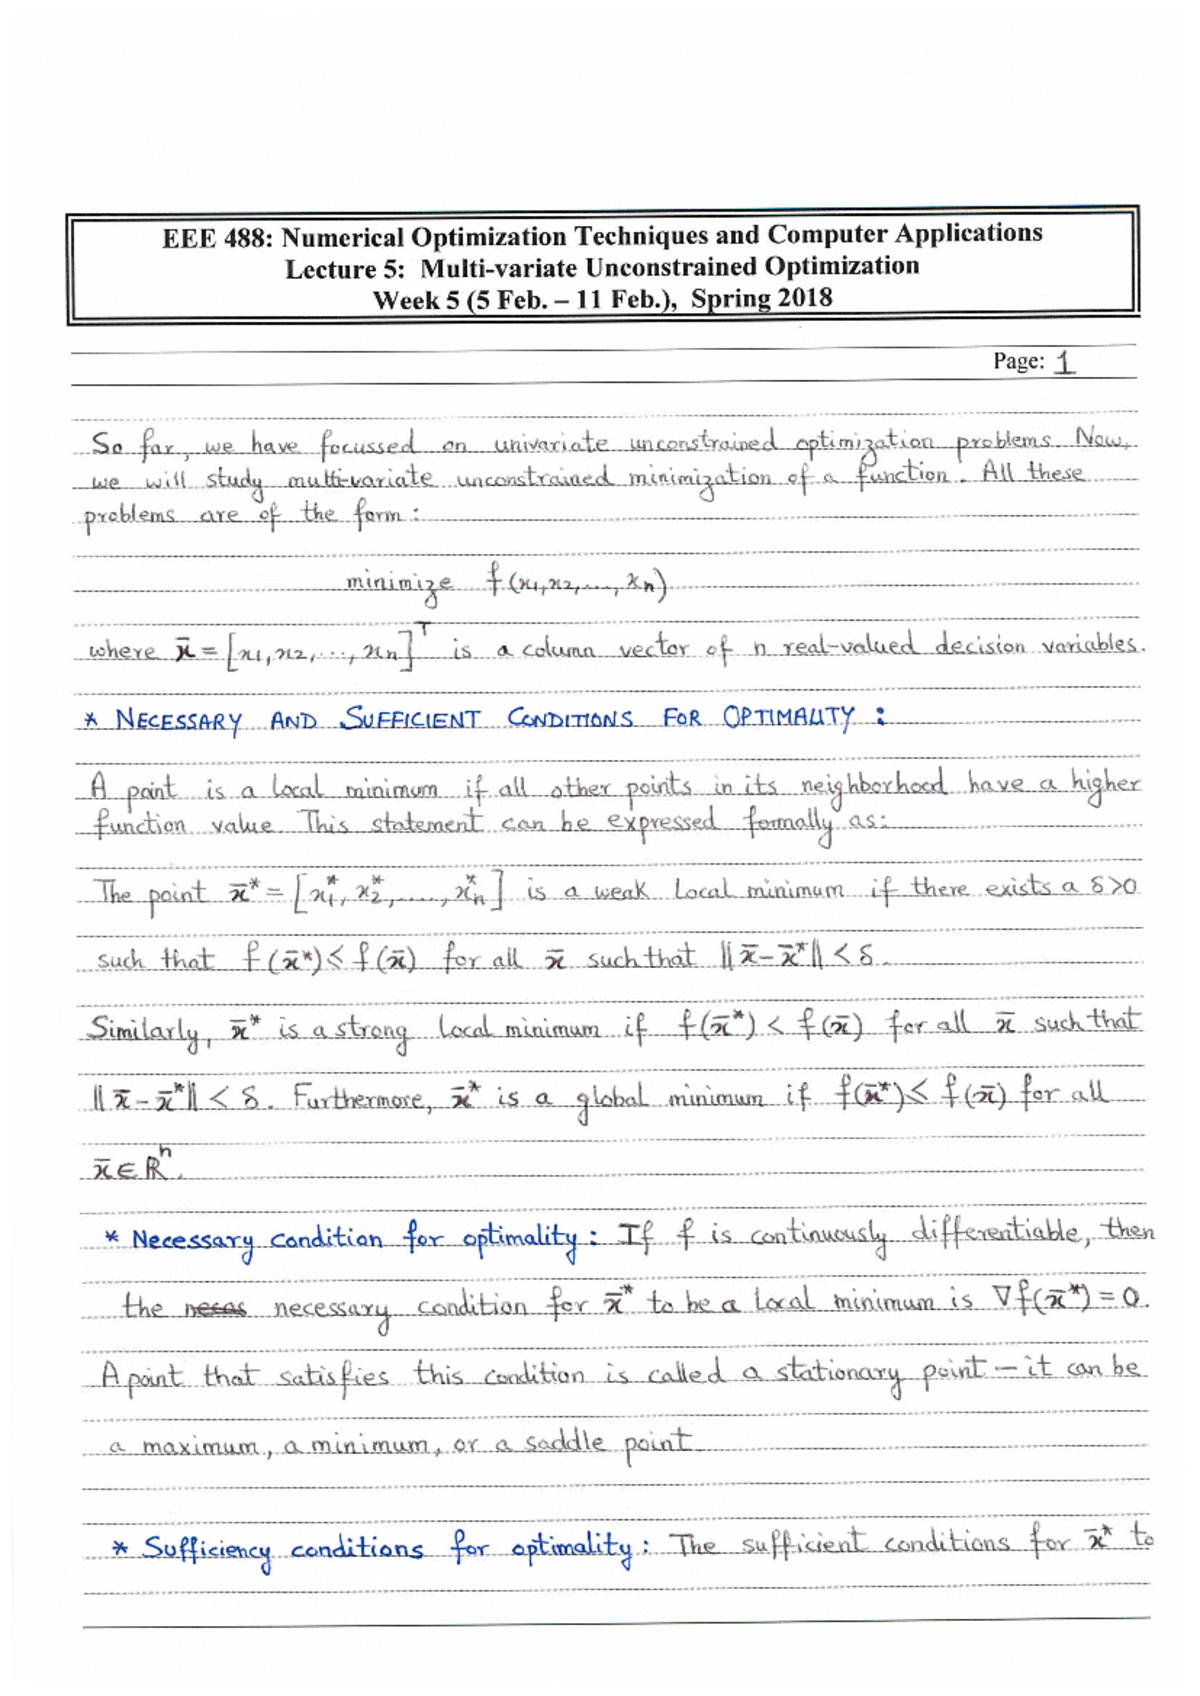 EEE 488: Numerical Optimization Techniques and Computer Applications
Lecture 5: Multi-variate Unconstrained Optimization
Week 5 (5 Feb. – 11 Feb.), Spring 2018
Page: 1
So far, we have focussed on univariate unconstrained optimization problems. Now,
we will study multi-variate unconstrained minimization of a function. All these
problems are of the form:
minimize f(x1, x2, ..., xn)
where x̄ = [x1, x2, ..., xn]ᵀ is a column vector of n real-valued decision variables.
* NECESSARY AND SUFFICIENT CONDITIONS FOR OPTIMALITY :
A point is a local minimum if all other points in its neighborhood have a higher
function value. This statement can be expressed formally as:
The point x̄* = [x1*, x2*, ...., xn*] is a weak local minimum if there exists a δ>0
such that f(x̄*) ≤ f(x̄) for all x̄ such that ‖x̄-x̄*‖ < δ.
Similarly, x̄* is a strong local minimum if f(x̄*) < f(x̄) for all x̄ such that
‖x̄-x̄*‖ < δ. Furthermore, x̄* is a global minimum if f(x̄*) ≤ f(x̄) for all
x̄ ∈ ℝⁿ.
* Necessary condition for optimality : If f is continuously differentiable, then
the necessary condition for x̄* to be a local minimum is ∇f(x̄*) = 0.
A point that satisfies this condition is called a stationary point – it can be
a maximum, a minimum, or a saddle point.
* Sufficiency conditions for optimality : The sufficient conditions for x̄* to